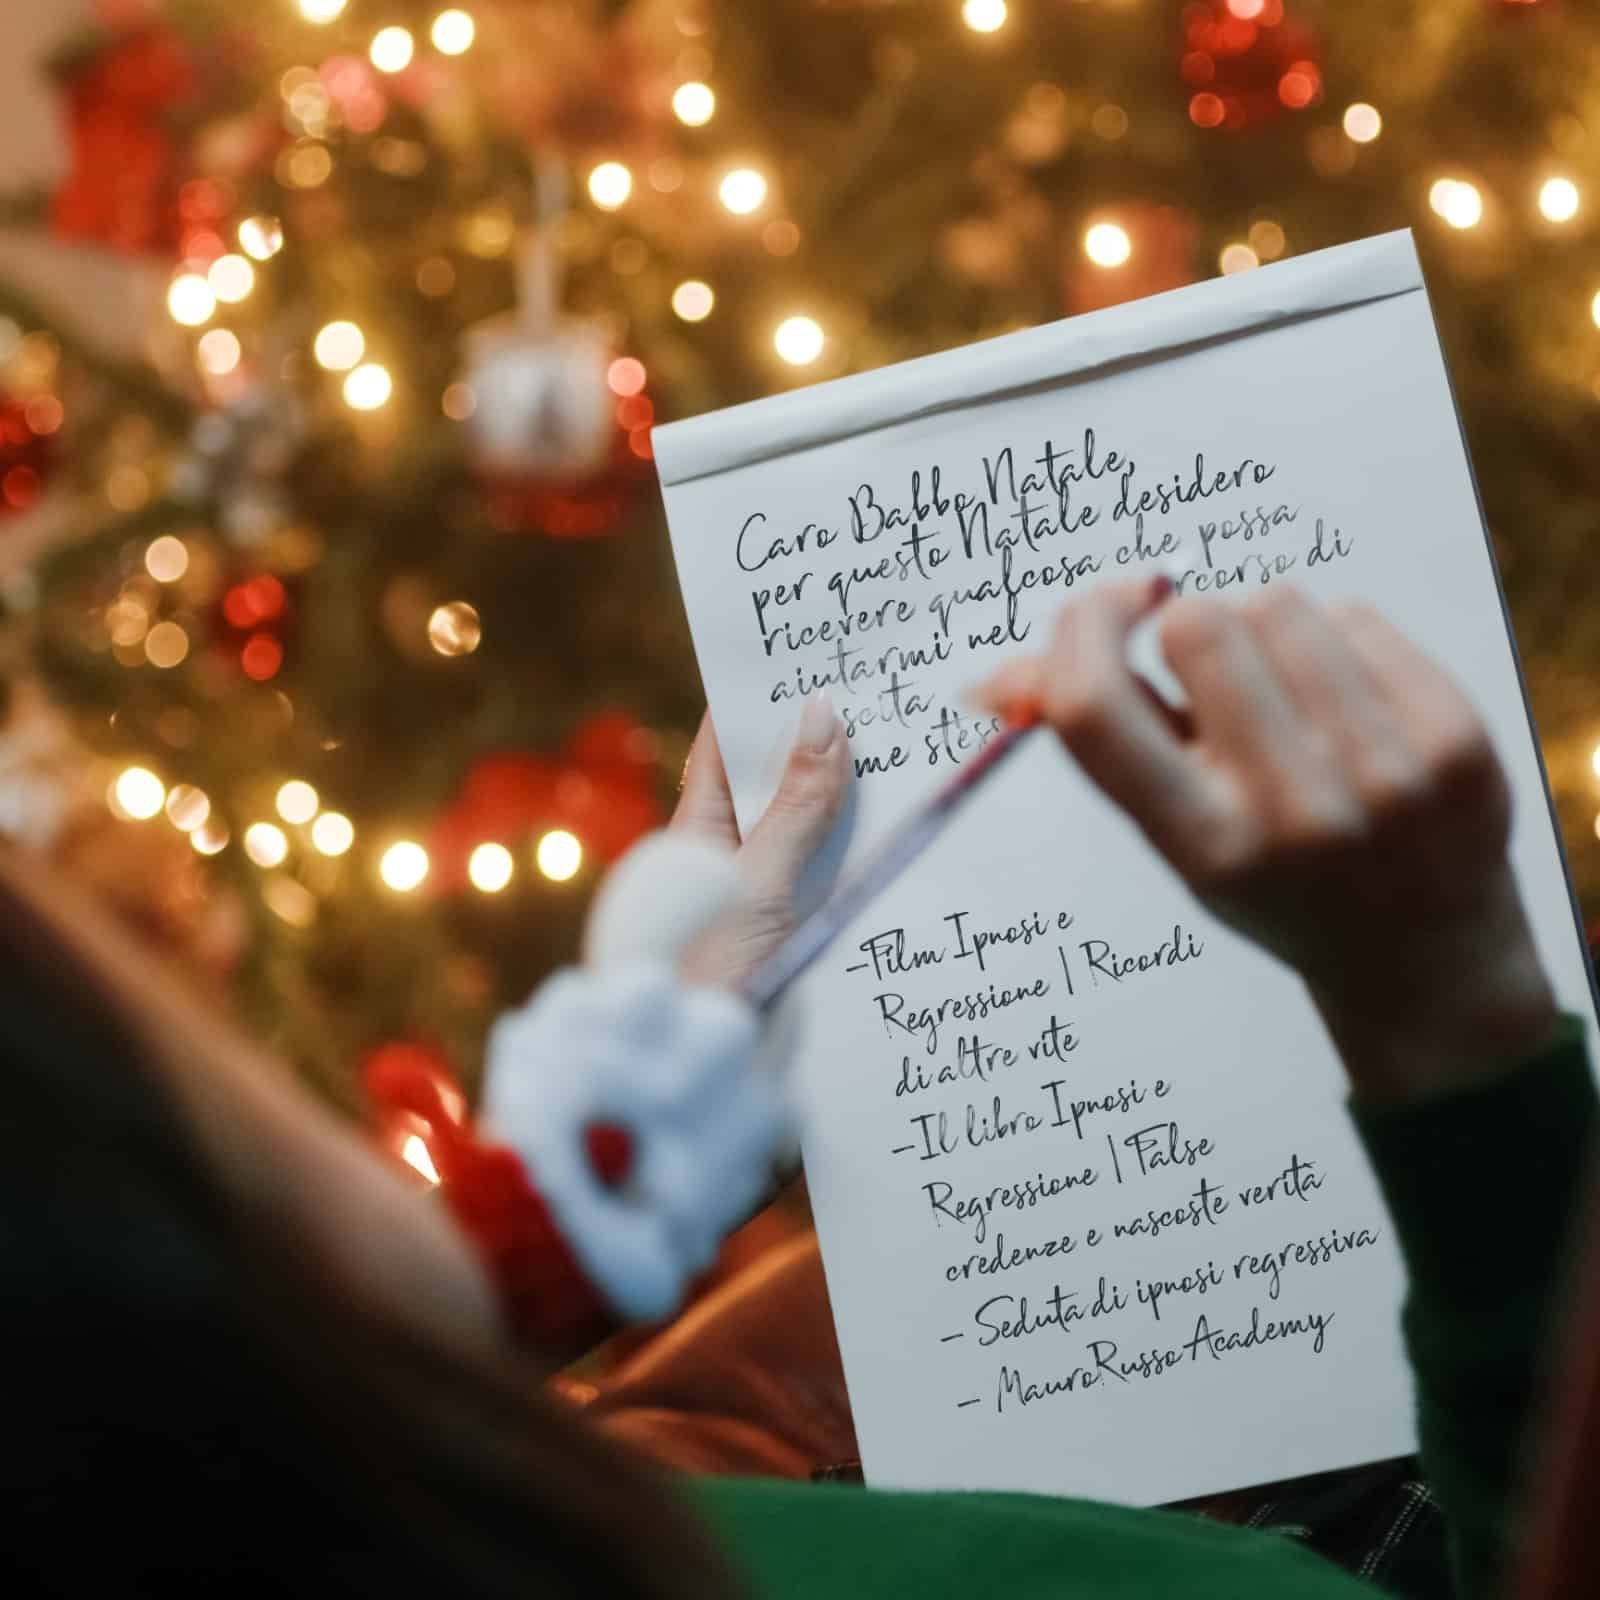 Caro Babbo Natale,
per questo Natale desidero
ricevere qualcosa che possa
aiutarmi nel rcorso di
scita
me stess
-Film Ipnosi e
Regressione | Ricordi
di altre vite
-Il libro Ipnosi e
Regressione | False
credenze e nascoste verità
- Seduta di ipnosi regressiva
- MauroRussoAcademy